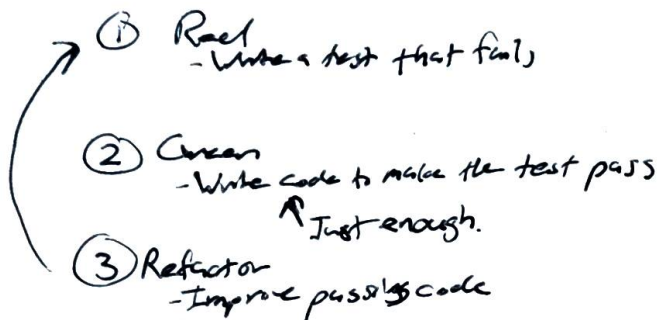 ① Red
- Write a test that fails
② Green
- Write code to make the test pass
Just enough.
③ Refactor
- Improve passing code